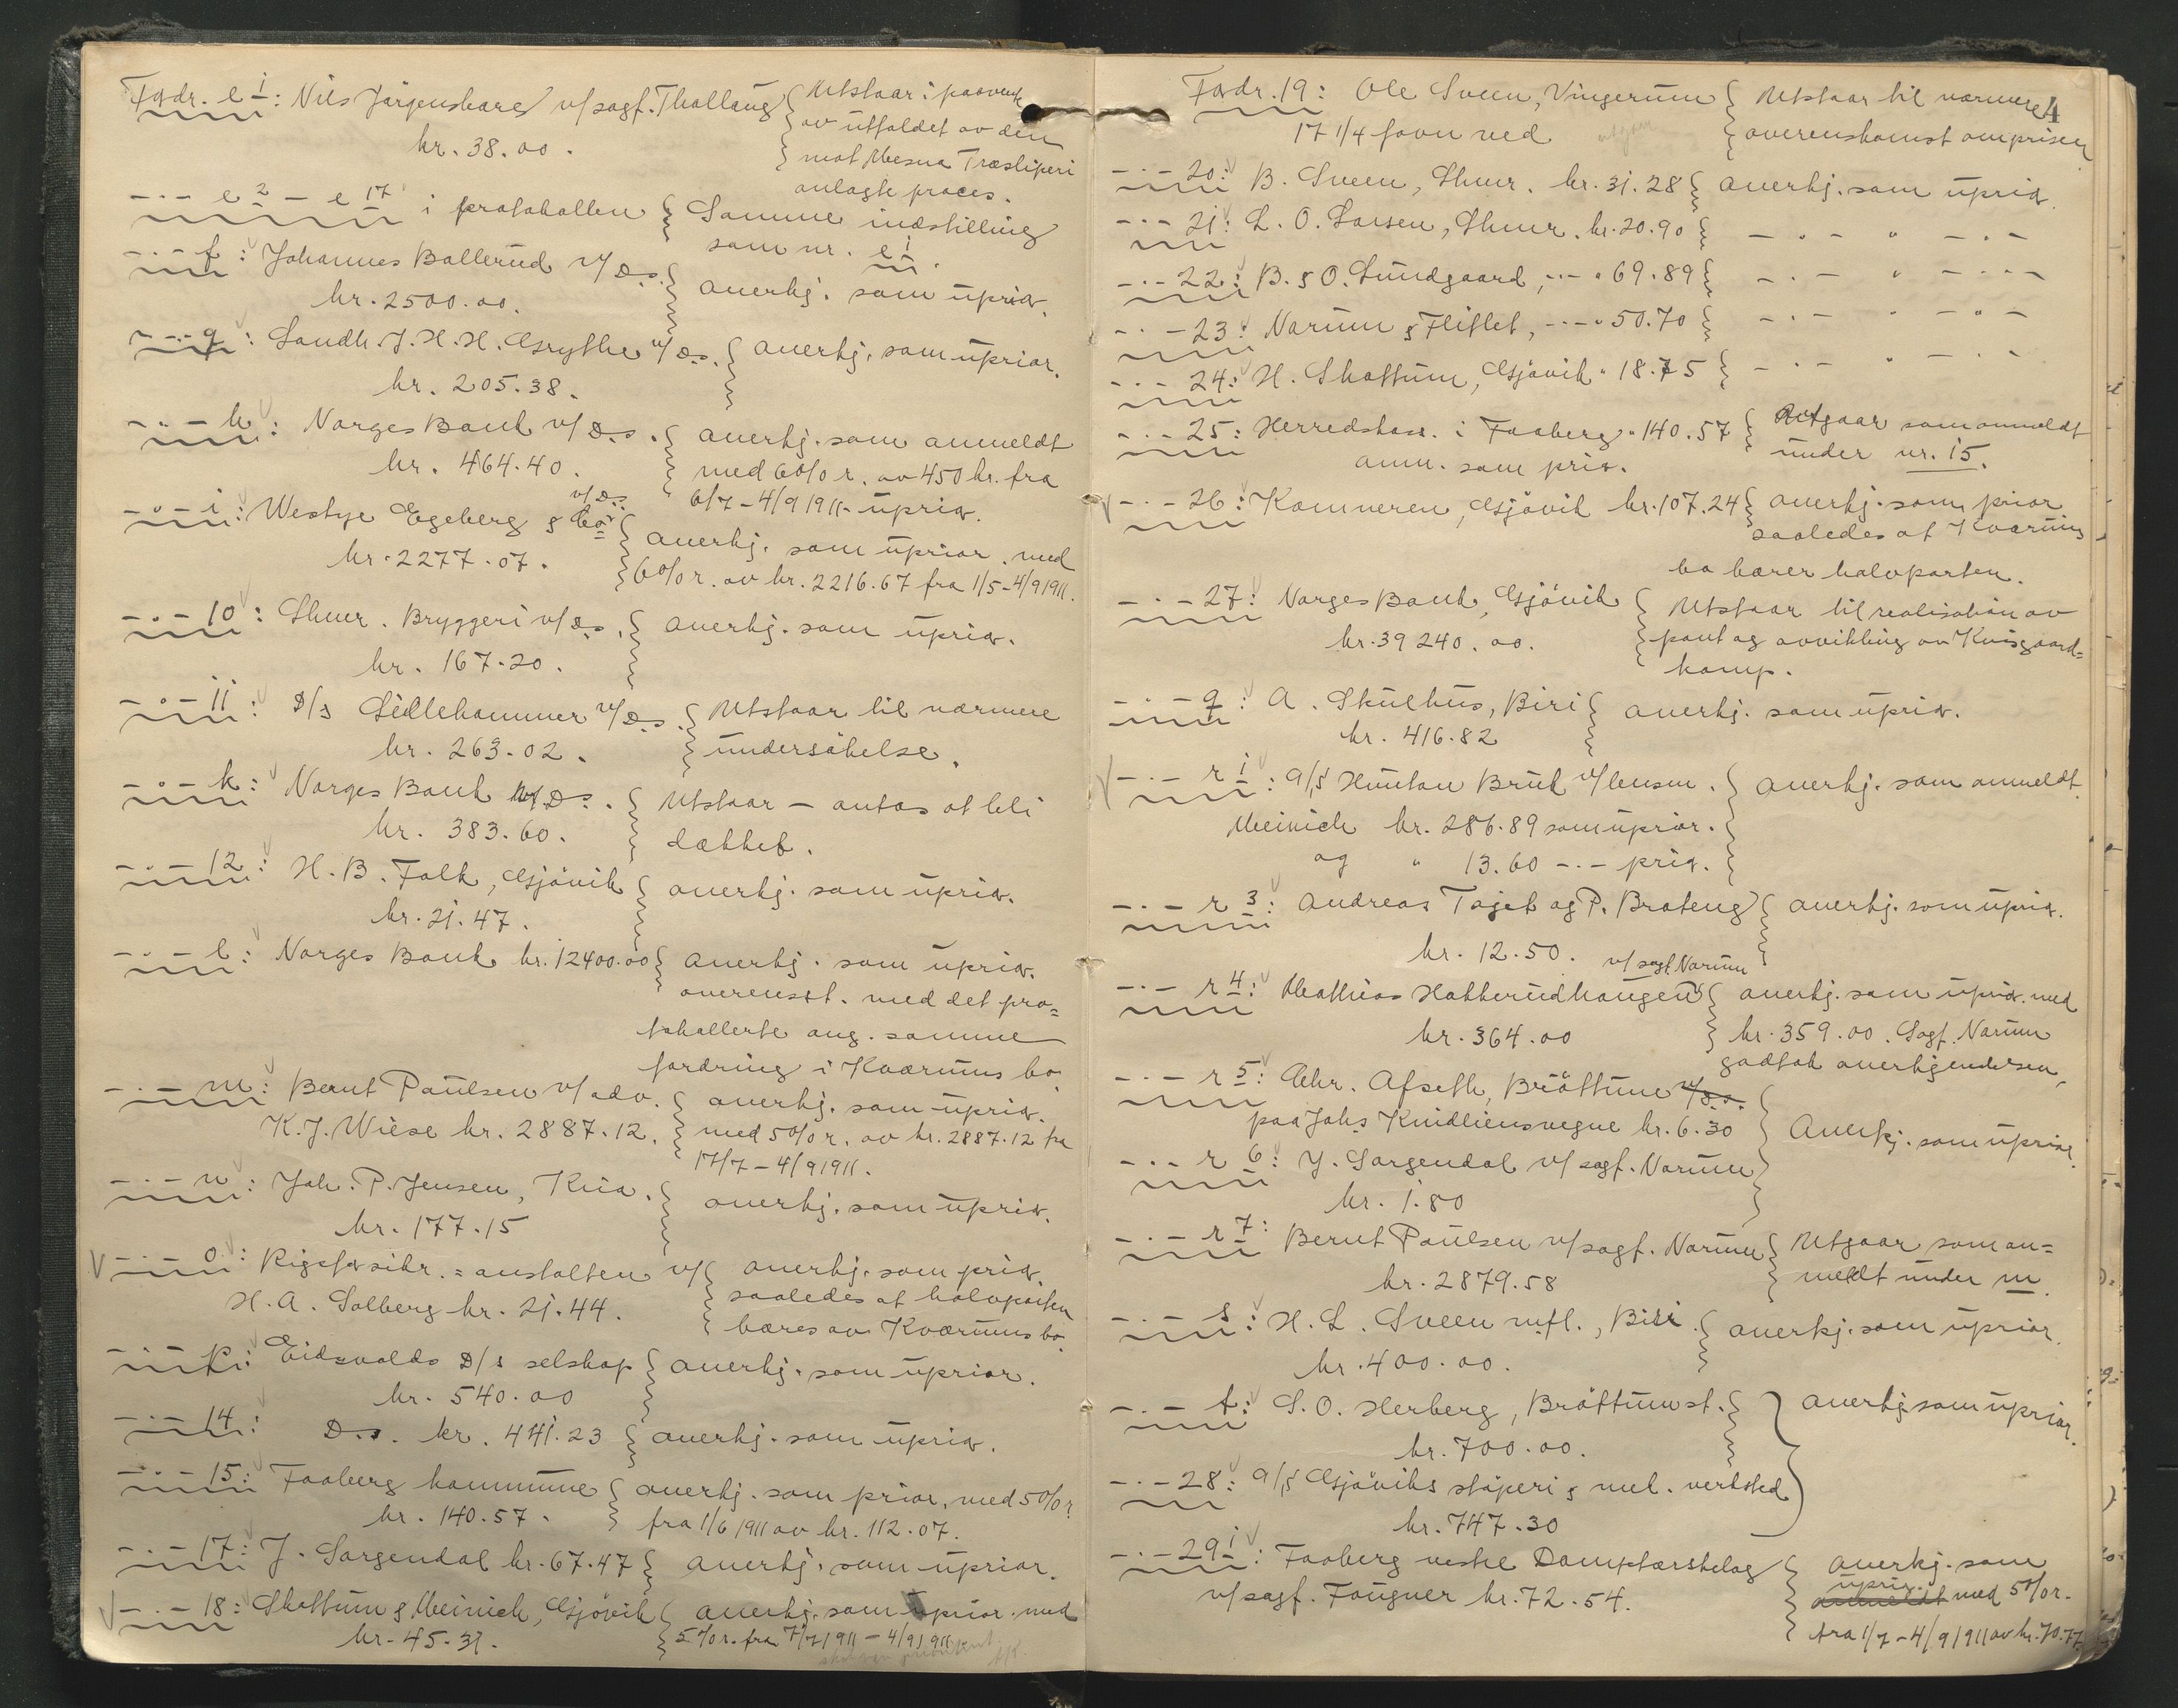 Fordr. e 1: Nils Jørgenshare v/sagf. Thallaug { Utstaar i paavente
kr. 38.00. av utfaldet av den
mot Mesna Træsliperi
anlagte proces.
-.- e 2 - e 17 i protokollen { Samme indstilling
som nr. e 1.
-.- f: Johannes Ballerud v/ D.s. { anerkj. som uprior.
kr. 2500.00.
-.- g: Landh. J. H. H. Grythe v/ D.s. { anerkj. som uprior.
kr. 205.38.
-.- h: Norges Bank v/ D.s. { anerkj. som anmeldt
kr. 464.40. med 6 0/0 r. av 450 kr. fra
6/7 - 4/9 1911 - uprior.
-.- i: Westye Egeberg & Co v/ D.s. { anerkj. som uprior. med
kr. 2277.07. 6 0/0 r. av kr. 2216.67 fra 1/5 - 4/9 1911.
-.- 10: Lhmr. Bryggeri v/ D.s. { anerkj. som uprior.
kr. 167.20.
-.- 11: D/s Lillehammer v/ D.s. { Utstaar til nærmere
kr. 263.02. undersökelse.
-.- k: Norges Bank v/ D.s. { Utstaar - antas at bli
kr. 383.60. dækket.
-.- 12: H. B. Falk, Gjövik { anerkj. som uprior.
kr. 21.47.
-.- l: Norges Bank kr. 12400.00 { anerkj. som uprior.
overensst. med det pro=
tokollerte ang. samme
fordring i Kværnums bo.
-.- m: Bernt Paulsen v/ adv. { anerkj. som uprior.
K. J. Wiese kr. 2887.12. med 5 0/0 r. av kr. 2887.12 fra
17/7 - 4/9 1911.
-.- n: Joh. P. Jensen, Kria. { anerkj. som uprior.
kr. 177.15
-.- o: Rigsforsikr.=anstalten v/ { anerkj. som prior.
H. A. Solberg kr. 21.44. saaledes at halvparten
bæres av Kværnums bo.
-.- p: Eidsvolds D/s selskap { anerkj. som uprior.
kr. 540.00
-.- 14: D.s. kr. 441.23 { anerkj. som uprior.
-.- 15: Faaberg kommune { anerkj. som prior. med 5 0/0 r
kr. 140.57. fra 1/6 1911 av kr. 112.07.
-.- 17: J. Sorgendal kr. 67.47 { anerkj. som uprior.
-.- 18: Skattum & Meinich, Gjövik { anerkj. som uprior. med
kr. 45.31. 5 0/0 r. fra 7/7 1911 - 4/9 1911
4
Fordr. 19: Ole Sveen, Vingerum { Utstaar til nærmere
17 1/4 favn ved overenskomst om prisen
-.- 20: B. Sveen, Lhmr. kr. 31.28 { anerkj. som uprior.
-.- 21: L. O. Larsen, Lhmr. kr. 20.90 { -.- " -.-
-.- 22: B. & O. Lundgaard, -.- " 69.89 { -.- " -.-
-.- 23: Narum & Fliflet, -.- " 50.70 { -.- " -.-
-.- 24: H. Skattum, Gjövik " 18.75 { -.- " -.-
-.- 25: Herredskass. i Faaberg " 140.57 { Utgaar som anmeldt
anm. som prior. under nr. 15.
-.- 26: Kæmneren, Gjövik kr. 107.24 { anerkj. som prior
saaledes at Kværnums
bo bærer halvparten.
-.- 27: Norges Bank, Gjövik { Utstaar til realisation av
kr. 39 240.00. pant og avvikling av Kvisgaard=
komp.
-.- q: A. Skulhus, Biri { anerkj. som uprior.
kr. 416.82
-.- r 1: A/S Hunton Bruk v/ lensm. { anerkj. som anmeldt.
Meinich kr. 286.89 som uprior.
og " 13.60 -.- prior.
-.- r 3: Andreas Tajet og P. Brateng { anerkj. som uprior.
kr. 12.50.
-.- r 4: Mathias Hakkerudhaugen v/ sagf. Narum { anerkj. som uprior. med
kr. 364.00 kr. 359.00. Sagf. Narum
godtok anerkjendelsen.
-.- r 5: Chr. Afseth, Bröttum v/ D.s.
paa Johs Knidliens vegne kr. 6.30 } Anerkj. som uprior.
-.- r 6: J. Sorgendal v/ sagf. Narum
kr. 1.80
-.- r 7: Bernt Paulsen v/ sagf. Narum { Utgaar som an=
kr. 2879.58 meldt under m.
-.- s: H. L. Sveen m.fl., Biri. { anerkj. som uprior.
kr. 400.00.
-.- t: S. O. Herberg, Bröttum st. } anerkj. som uprior.
kr. 700.00.
-.- 28: A/S Gjöviks stöperi & mek. verksted
kr. 747.30
-.- 29 1: Faaberg vestre Damptærskelag { anerkj. som
v/ sagf. Fougner kr. 72.54. uprior. anmeldt med 5 0/0 r.
fra 1/7 - 4/9 1911 av kr. 70.77.